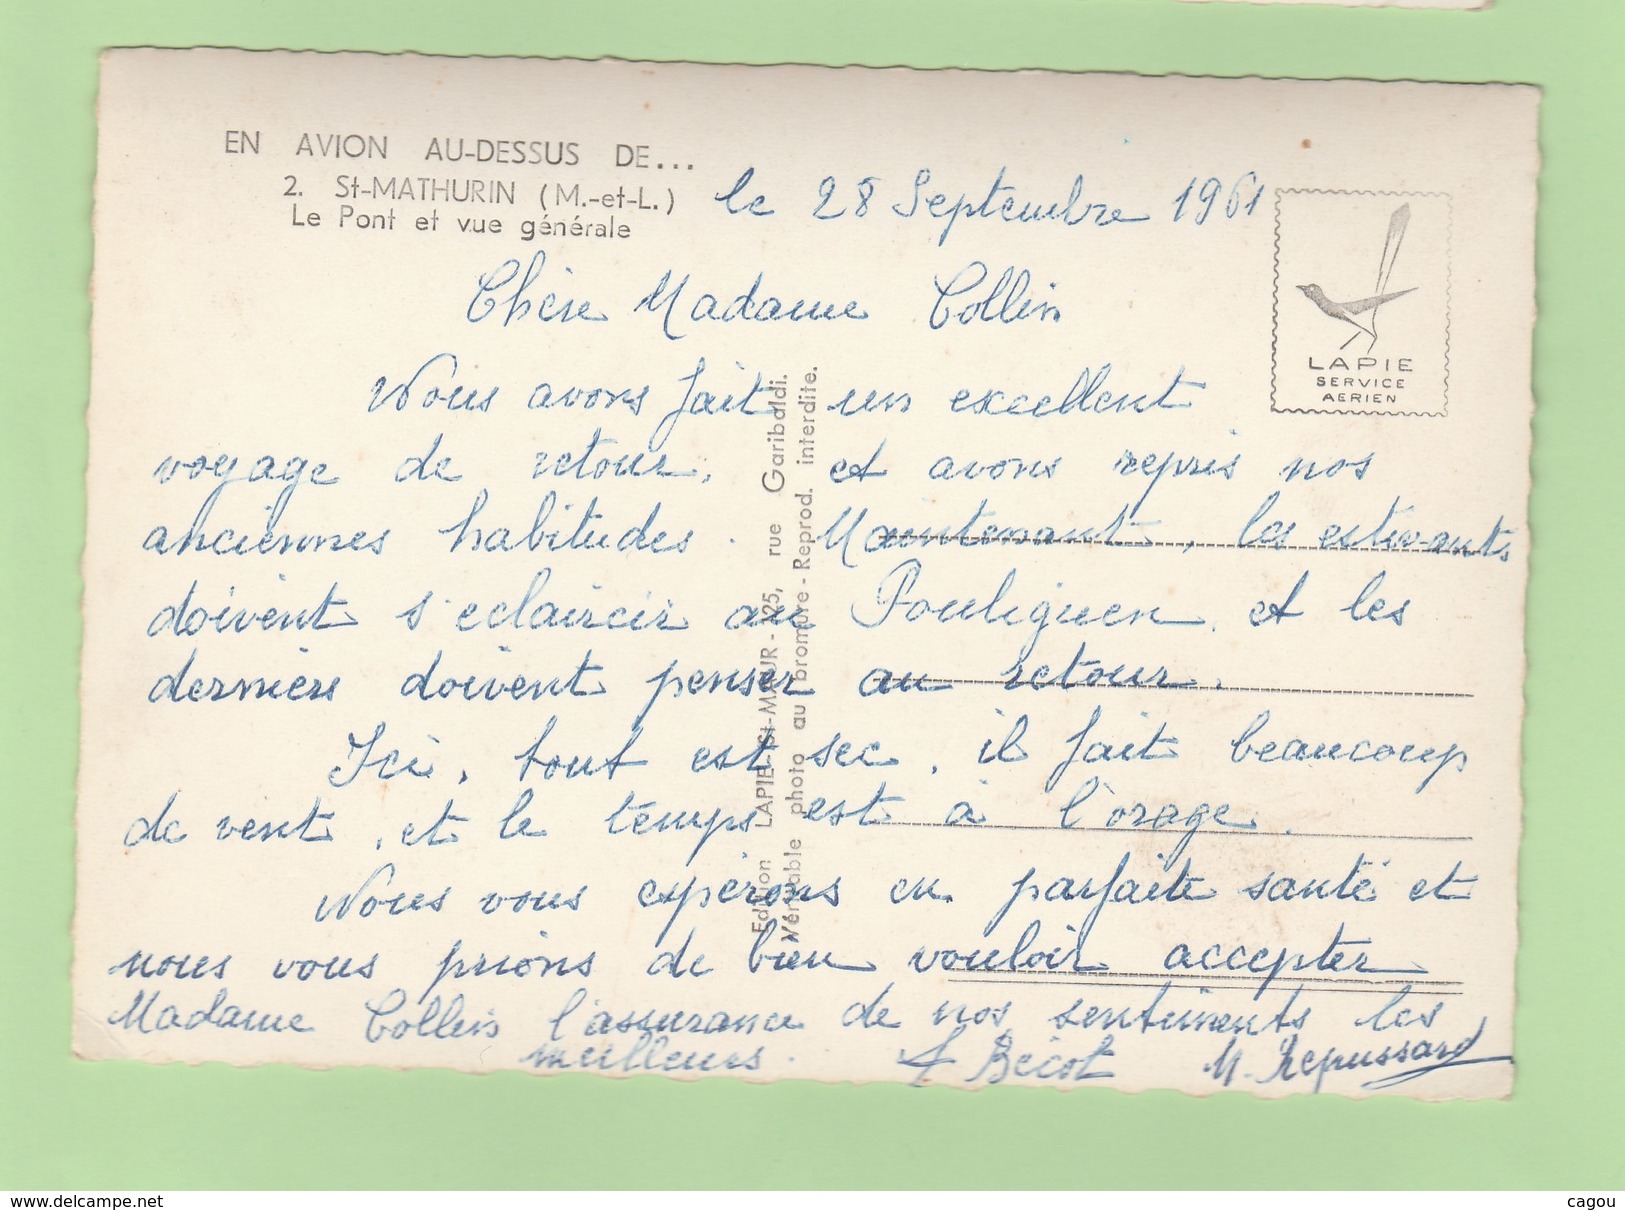 EN AVION AU-DESSUS DE...
2. St-MATHURIN (M.-et-L.)
Le Pont et vue générale
le 28 Septembre 1961
LAPIE
SERVICE
AERIEN
Chère Madame Collin
Nous avons fait un excellent
voyage de retour, et avons repris nos
anciennes habitudes. Maintenant, les estivants
doivent s'eclaircir au Pouliguen, et les
derniers doivent penser au retour.
Ici, tout est sec, il fait beaucoup
de vent, et le temps est à l'orage.
Nous vous espérons en parfaite santé et
nous vous prions de bien vouloir accepter
Madame Collin l'assurance de nos sentiments les
meilleurs. Bécot M. Repussard
Edition LAPIE - St-MAUR - 125, rue Garibaldi.
Véritable photo au bromure - Reprod. interdite.
www.delcampe.net
cagou